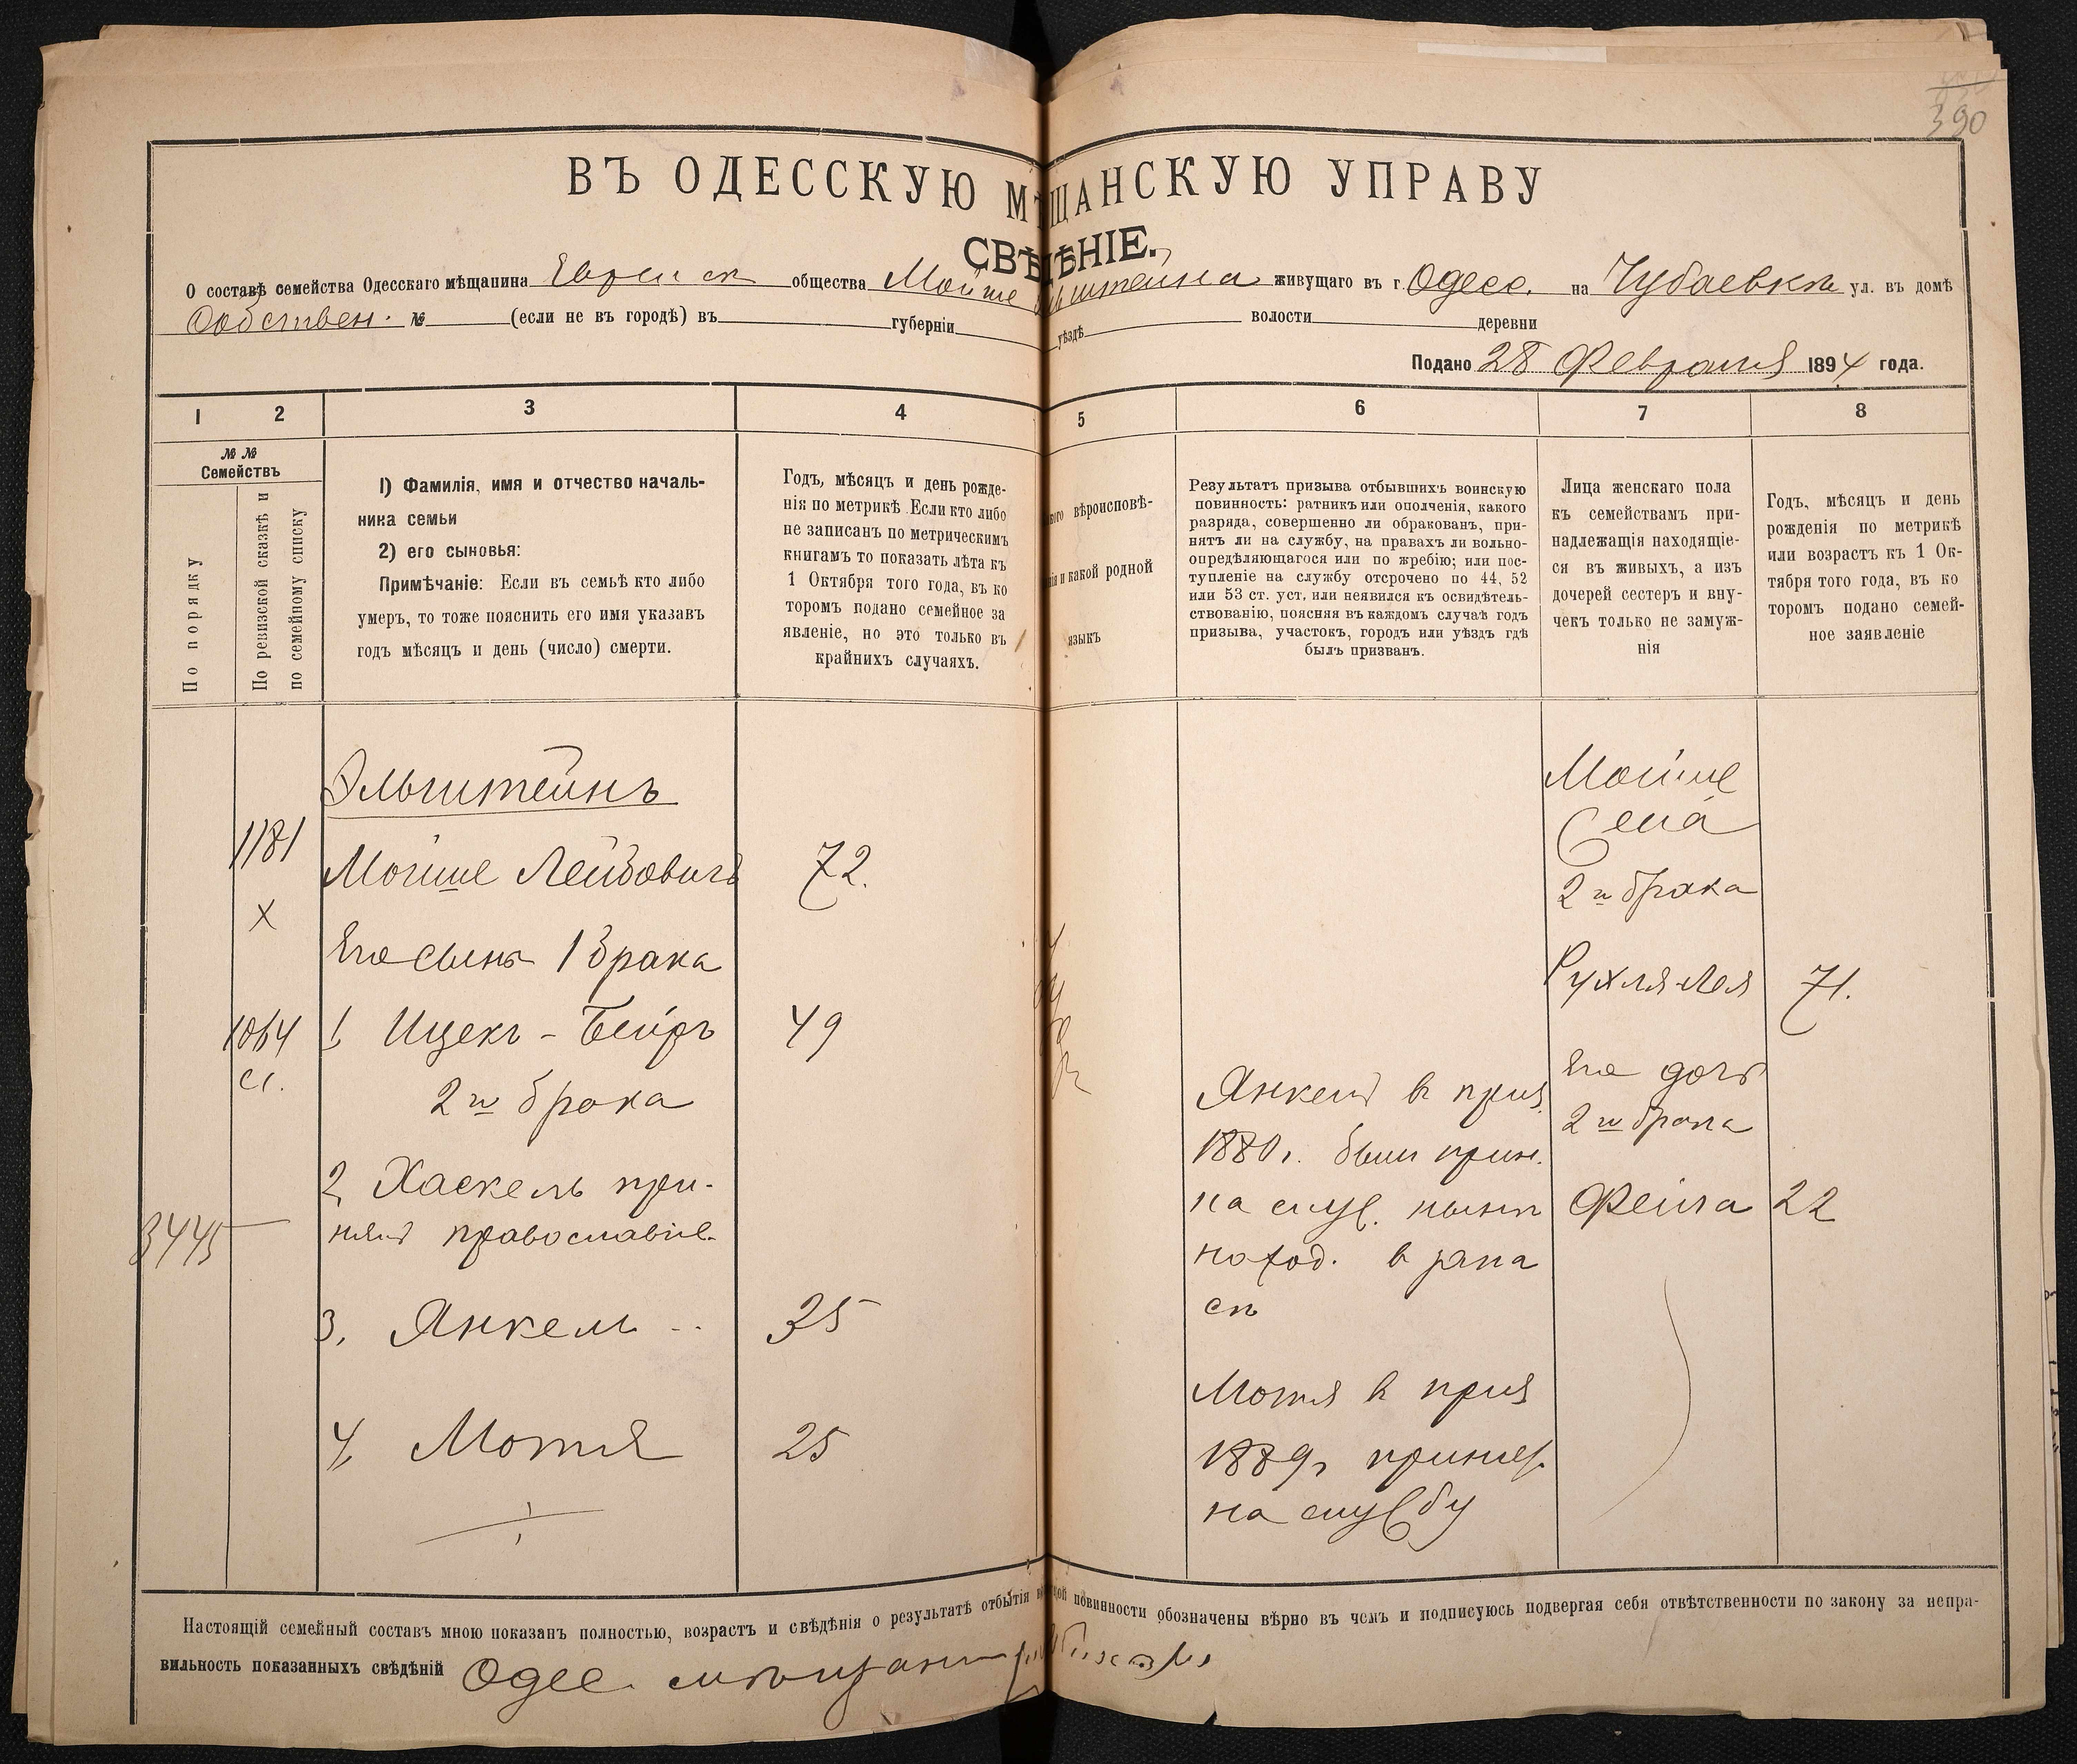 390
ВЪ ОДЕССКУЮ МѢЩАНСКУЮ УПРАВУ
СВѢДѢНІЕ.
О составѣ семейства Одесскаго мѣщанина Еврейск общества Мойше штейна живущаго въ г. Одесс. на Чубаевка ул. въ домѣ
Собствен. № (если не въ городѣ) въ губерніи уѣздѣ волости деревни
Подано 28 Февраля 1894 года.
1 2 3 4 5 6 7 8
№ №
Семействъ
По порядку
По ревизской сказкѣ и
по семейному списку
1) Фамилія, имя и отчество началь-
ника семьи
2) его сыновья:
Примѣчаніе: Если въ семьѣ кто либо
умеръ, то тоже пояснить его имя указавъ
годъ мѣсяцъ и день (число) смерти.
Годъ, мѣсяцъ и день рожде-
нія по метрикѣ. Если кто либо
не записанъ по метрическимъ
книгамъ то показать лѣта къ
1 Октября того года, въ ко
торомъ подано семейное за
явленіе, но это только въ
крайнихъ случаяхъ.
вѣроисповѣ-
и какой родной
языкъ
Результатъ призыва отбывшихъ воинскую
повинность: ратникъ или ополченія, какого
разряда, совершенно ли обракованъ, при-
нятъ ли на службу, на правахъ ли вольно-
опредѣляющагося или по жребію; или пос-
тупленіе на службу отсрочено по 44, 52
или 53 ст. уст. или неявился къ освидѣтель-
ствованію, поясняя въ каждомъ случаѣ годъ
призыва, участокъ, городъ или уѣздъ гдѣ
былъ призванъ.
Лица женскаго пола
къ семействамъ при-
надлежащія находящіе-
ся въ живыхъ, а изъ
дочерей сестеръ и вну-
чекъ только не замуж-
нія
Годъ, мѣсяцъ и день
рожденія по метрикѣ
или возрастъ къ 1 Ок-
тября того года, въ ко
торомъ подано семей-
ное заявленіе
Эльштейнъ
1181
Мойше Лейбовичъ 72.
х
Его сынъ 1 брака
1064 1 Ицекъ - Бейръ 49
сл.
2го брака
2 Хаскель при-
нялъ православіе.
3445
3. Янкель 35
4. Мотя 25
Янкель в приз.
1880 г. былъ прин.
на служ. нынѣ
наход. в запа
сѣ
Мотя в приз
1889 г принят.
на службу
Мойше
2го брака
Рухля-Лея 71.
Его дочь
2го брака
Фейга 22
Настоящій семейный составъ мною показанъ полностью, возрастъ и свѣдѣнія о результатѣ отбытія повинности обозначены вѣрно въ чемъ и подписуюсь подвергая себя отвѣтственности по закону за непра-
вильность показанныхъ свѣдѣній Одес. мѣщанин